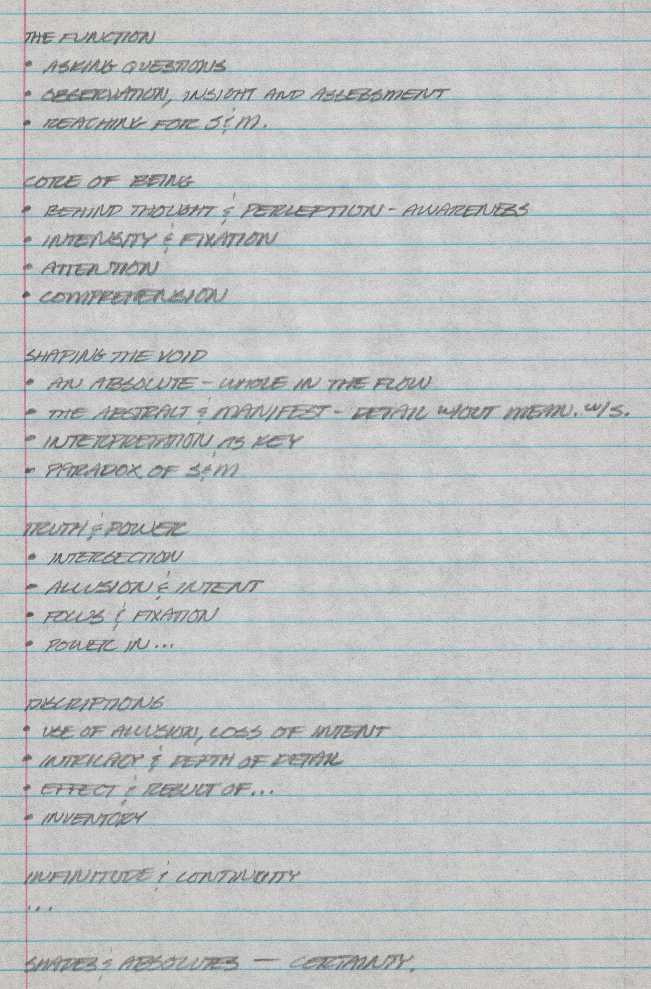 THE FUNCTION
• ASKING QUESTIONS
• OBSERVATION, INSIGHT AND ASSESSMENT
• REACHING FOR S&M.
CORE OF BEING
• BEHIND THOUGHT & PERCEPTION - AWARENESS
• INTENSITY & FIXATION
• ATTENTION
• COMPREHENSION
SHAPING THE VOID
• AN ABSOLUTE - WHOLE IN THE FLOW
• THE ABSTRACT & MANIFEST - DETAIL W/OUT MEAN. W/S.
• INTERPRETATION AS KEY
• PARADOX OF S&M
TRUTH & POWER
• INTERSECTION
• ALLUSION & INTENT
• FOCUS & FIXATION
• POWER IN...
DISCRIPTIONS
• USE OF ALLUSION, LOSS OF INTENT
• INTRICACY & DEPTH OF DETAIL
• EFFECT & RESULT OF...
• INVENTORY
INFINITUDE & CONTINUITY
...
SHADES & ABSOLUTES — CERTAINTY.